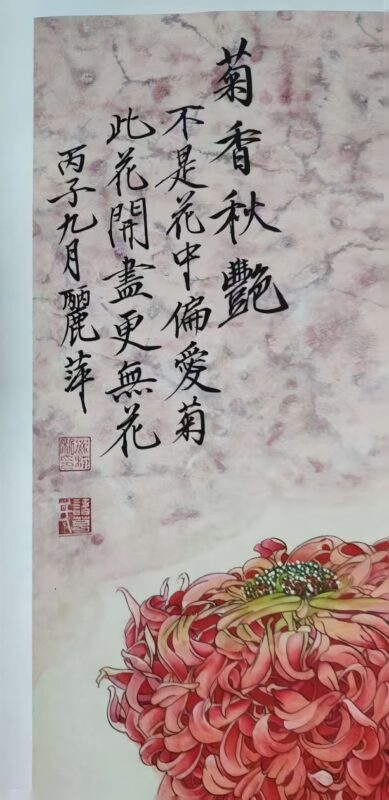 菊香秋艷
不是花中偏愛菊
此花開盡更無花
丙子九月麗萍